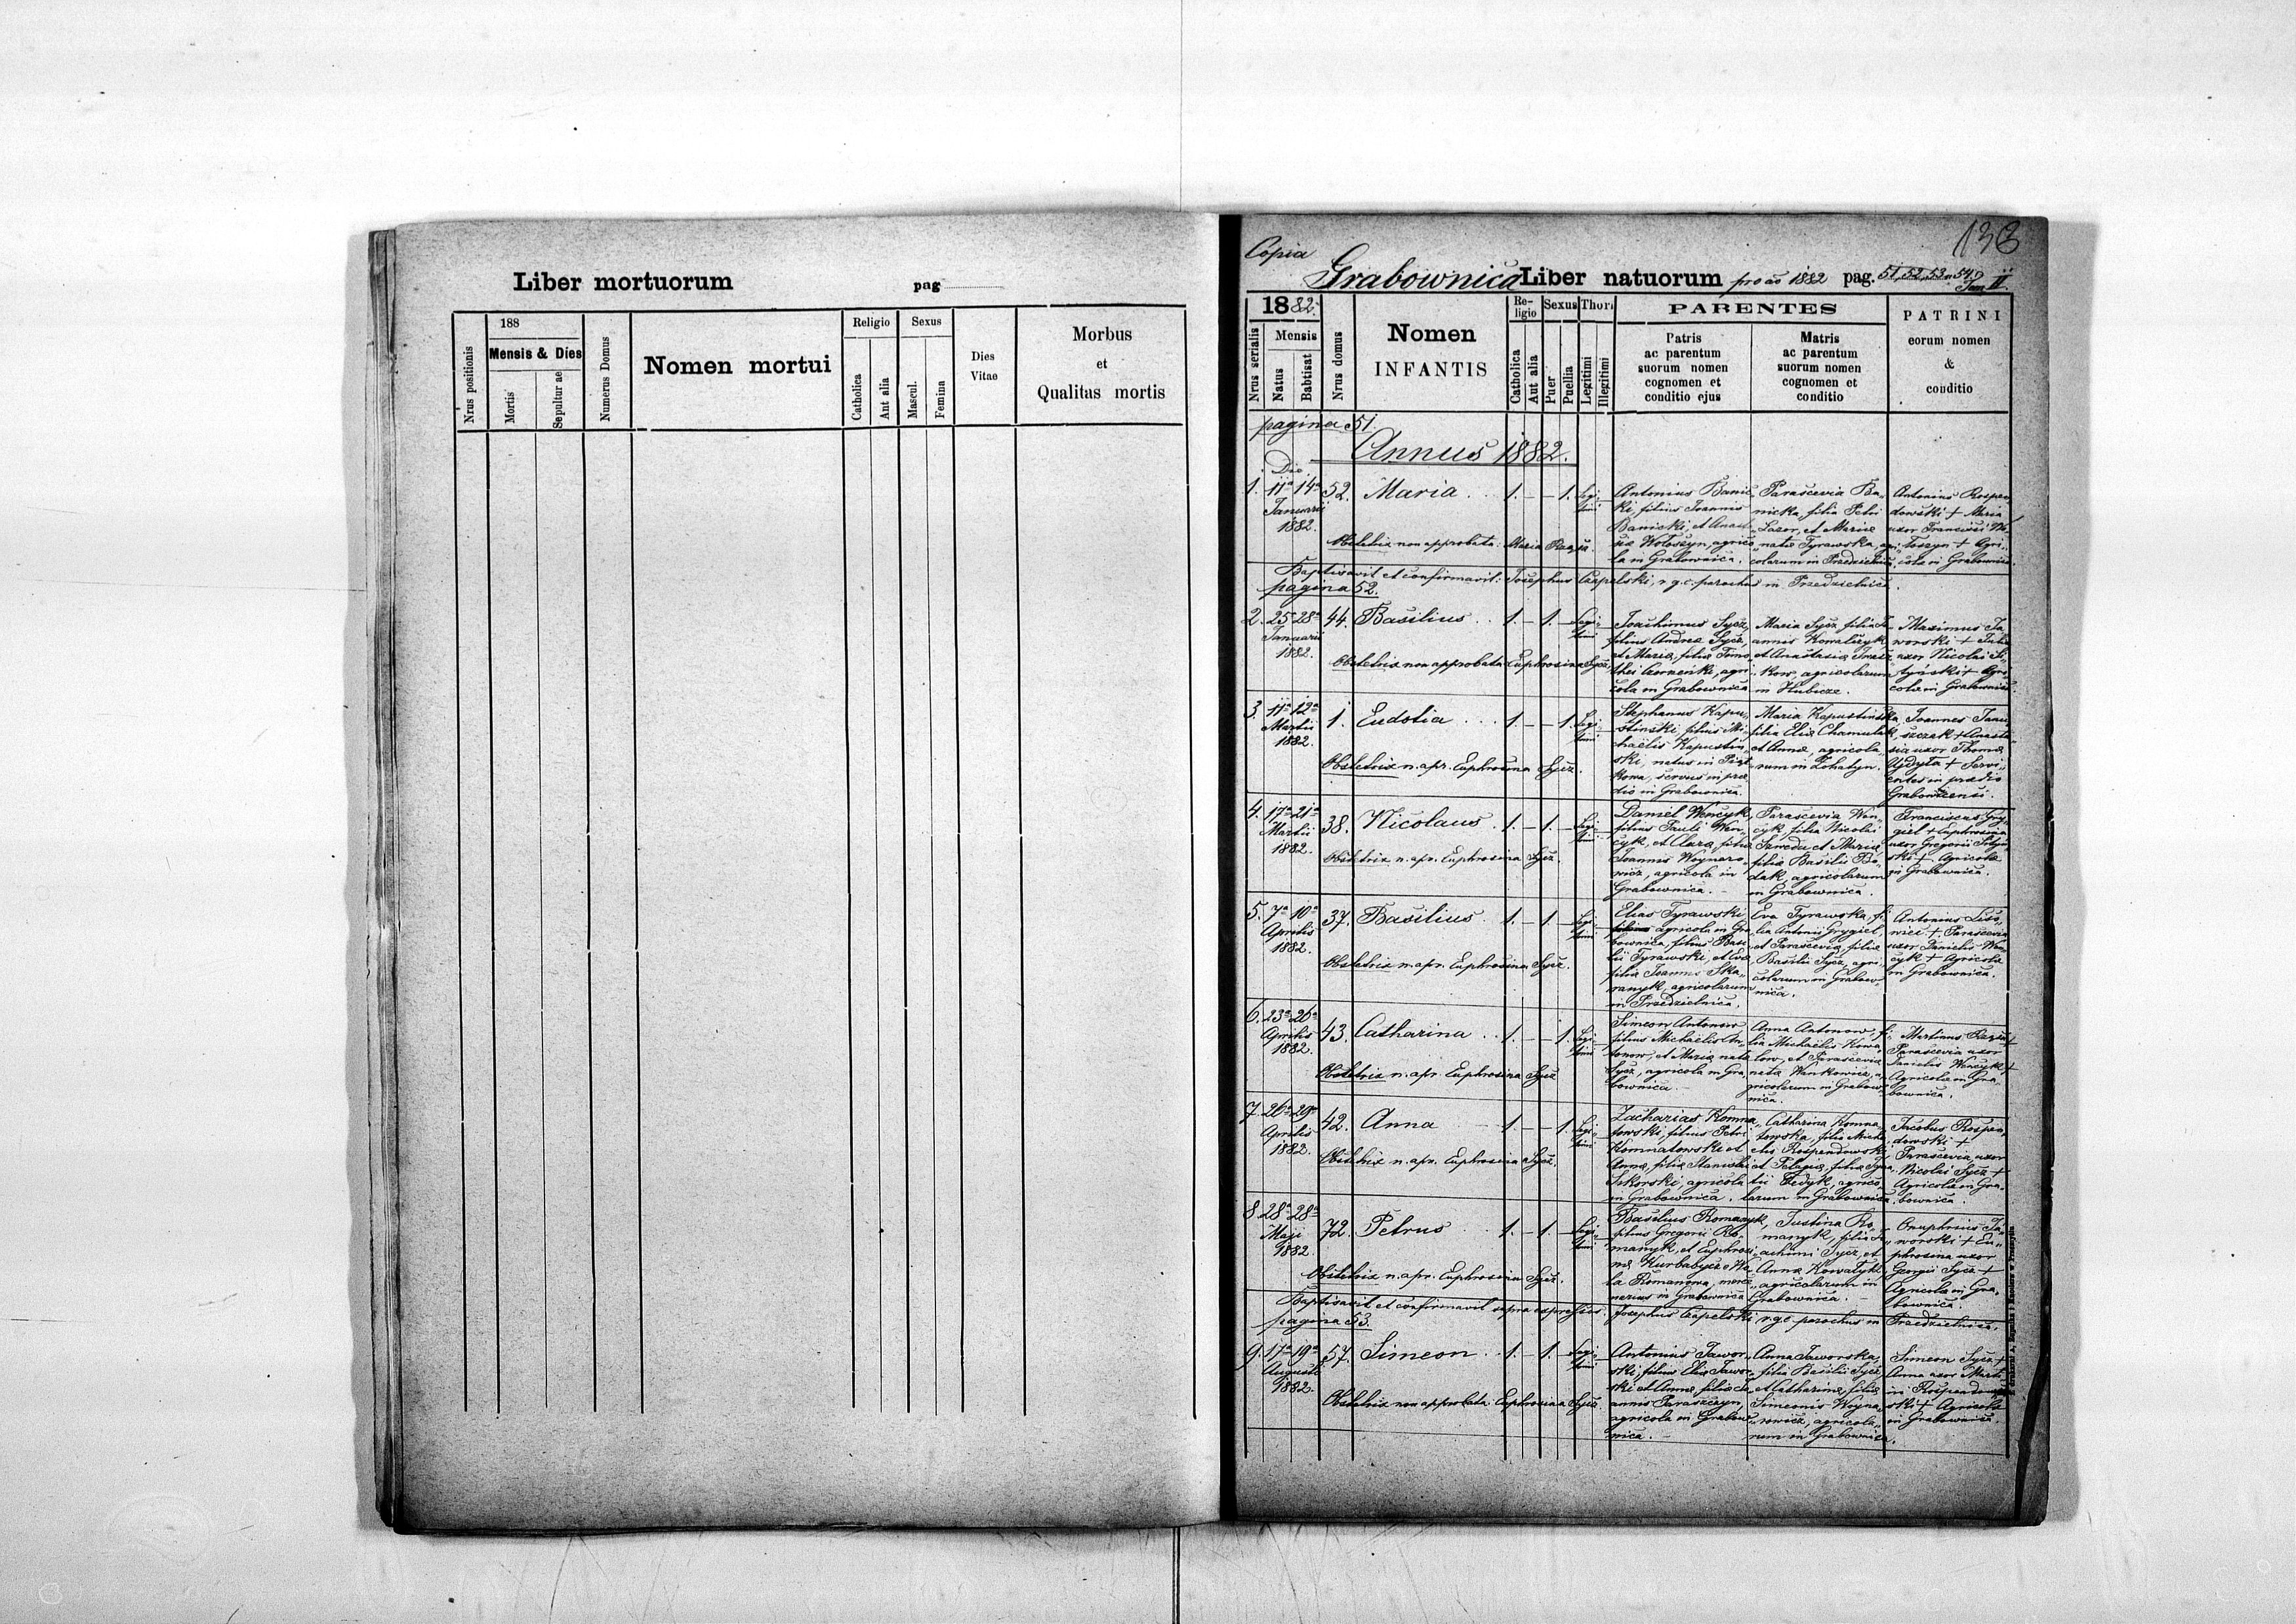 Liber mortuorum pag
Nrus positionis
188
Mensis & Dies
Mortis
Sepulturae
Numerus Domus
Nomen mortui
Religio
Catholica
Aut alia
Sexus
Mascul.
Femina
Dies
Vitae
Morbus
et
Qualitus mortis
Copia
138
Grabownica Liber natuorum pro ao 1882 pag. 51, 52, 53 54
Tom II.
Nrus serialis
1882.
Mensis
Natus
Babtisat
Nrus domus
Nomen
INFANTIS
Re-
ligio
Catholica
Aut alia
Sexus
Puer
Puellia
Thori
Legitimi
Illegitimi
PARENTES
Patris
ac parentum
suorum nomen
cognomen et
conditio ejus
Matris
ac parentum
suorum nomen
cognomen et
conditio
PATRINI
eorum nomen
&
conditio
pagina 51.
Annus 1882.
Die
1. 11a 14a
Januarii
1882.
52. Maria 1. — — 1. Legi-
timi
Obstetrix non approbata: Maria
Antonius Banic-
ki, filius Joannis
Banicki, et Anast-
siæ Wołoszyn, agrico-
la in Grabownica.
Parascevia Ba-
nicka, filia Petri
Lazor, et Mariæ
natæ Tyrawska, agri-
colarum in Przedzielnica.
Antonius Rospen-
dowski + Maria
uxor Francisci Wo-
łoszyn + Agri-
colæ in Grabownica.
Baptisavit et confirmavit: Josephus Czapelski, r. g. c. parochus in Przedzielnica.
pagina 52.
2. 25a 28a
Januarii
1882.
44. Basilius 1. — 1. — Legi-
timi
Obstetrix non approbata Euphrosina Sycz.
Joachimus Sycz,
filius Andreæ Sycz,
et Mariæ, filiæ Timo-
thei agri-
cola in Grabownica
Maria Sycz filia Jo-
annis Kowalczyk,
et Anastasiæ
agricolarum
in Hubicze.
Maximus Ja-
worski + Julia
uxor Nicolai
+ Agri-
colæ in Grabownica.
3. 11a 12a
Martii
1882.
1. Eudotia 1. — — 1. Legi-
timi
Obstetrix n. apr. Euphrosina Sycz.
Stephanus Kapu-
stinski, filius Mi-
chaëlis Kapustin-
ski, natus in Piąt-
kowa, servus in præ-
dio in Grabownica.
Maria Kapustinska,
filia Eliæ Chamulak,
et Annæ, agricola-
rum in Lohatyn.
Joannes Janu-
szczak + Anasta-
sia uxor Thomæ
+ Servi-
entes in prædio
Grabowicensi.
4. 17a 21a
Martii
1882.
38. Nicolaus 1. — 1. — Legi-
timi
Obstetrix n. apr. Euphrosina Sycz.
Daniel Wencyk,
filius Pauli Wen-
cyk, et Claræ, filiæ
Joannis Woynaro-
wicz, agricola in
Grabownica.
Parascevia Wen-
cyk, filia Nicolai
Szweda et Mariæ
filiæ Basilii Bo-
dak, agricolarum
in Grabownica.
Franciscus Gry-
giel + Euphrosina
uxor Gregorii
+ Agricolæ
in Grabownica.
5. 7a 10a
Aprilis
1882.
37. Basilius 1. — 1. — Legi-
timi
Obstetrix n. apr. Euphrosina Sycz.
Elias Tyrawski
agricola in Gra-
bownica, filius Basi-
lii Tyrawski, et Evæ
filiæ Joannis Ska-
ranyk, agricolarum
in Przedzielnica.
Eva Tyrawska, fi-
lia Antonii Grygiel,
et Parasceviæ, filiæ
Basilii Sycz, agri-
colarum in Grabow-
nica.
Antonius Liso-
wiec + Parascevia
uxor Danielis Wen-
cyk + Agricolæ
in Grabownica.
6. 23a 26a
Aprilis
1882.
43. Catharina 1. — — 1. Legi-
timi
Obstetrix n. apr. Euphrosina Sycz
Simeon Antonow
filius Michaëlis An-
tonow, et Mariæ natæ
Sycz, agricola in Gra-
bownica.
Anna Antonow, fi-
lia Michaëlis Kowa-
low, et Parasceviæ
natæ Wankowicz, a-
gricolarum in Grabow-
nica.
Martinus +
Parascevia uxor
Danielis Wencyk +
Agricolæ in Gra-
bownica.
7. 26a 29a
Aprilis
1882.
42. Anna — 1. — — 1. Legi-
timi
Obstetrix n. apr. Euphrosina Sycz.
Zacharias Komna-
towski, filius Petri
Komnatowski et
Annæ, filiæ Stanislai
Sikorski, agricola
in Grabownica.
Catharina Komna-
towska, filia Micha-
elis Rospendowski,
et Pelagiæ, filiæ
Fedyk, agrico-
larum in Grabownica.
Jacobus Rospen-
dowski +
Parascevia, uxor
Nicolai Sycz +
Agricolæ in Gra-
bownica.
8. 28a 28a
Maji
1882.
72. Petrus 1. — 1. — Legi-
timi
Obstetrix n. apr. Euphrosina Sycz.
Basilius Romanyk,
filius Gregorii Ro-
manyk, et Euphrosi-
næ Kurbabycz e Wo-
la Romanowa, merce-
nerius in Grabownica
Justina Ro-
manyk, filia Jo-
achimi Sycz, et
Anna Kowalyk,
agricolarum in
Grabownica.
Onuphrius Ja-
worski + Eu-
phrosina uxor
Georgii Sycz +
Agricolæ in Gra-
bownica.
Baptisavit et confirmavit supra expressus: Josephus Czapelski r. g. c. parochus in Przedzielnica.
pagina 53.
9. 17a 19a
Augusti
1882.
57. Simeon 1. — 1. — Legi-
timi
Obstetrix non approbata: Euphrosina Sycz.
Antonius Jawor-
ski, filius Eliæ Jawor-
ski et Annæ, filiæ Jo-
annis Paraszczyn,
agricola in Grabow-
nica. —
Anna Jaworska,
filia Basilii Sycz,
et Catharinæ, filiæ
Simeonis Woyna-
rowicz, agricola-
rum in Grabownica.
Simeon Sycz +
Anna uxor Marti-
ni Rospendow-
ski + Agricolæ
in Grabownica.